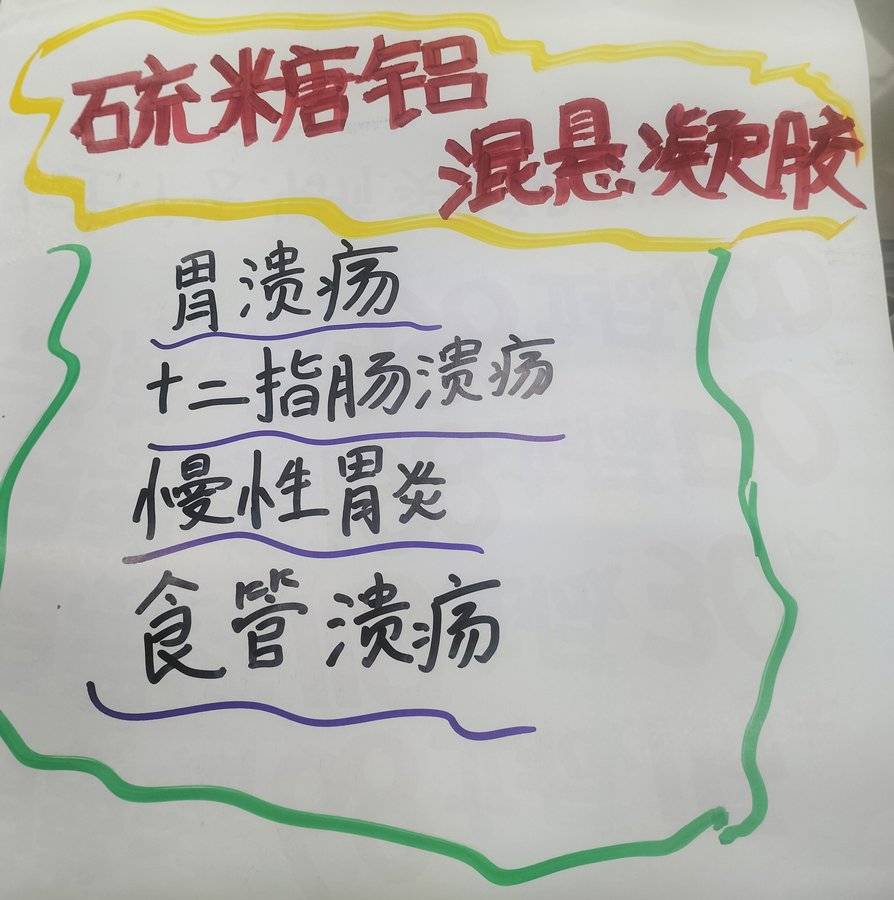 硫糖铝
混悬凝胶
胃溃疡
十二指肠溃疡
慢性胃炎
食管溃疡